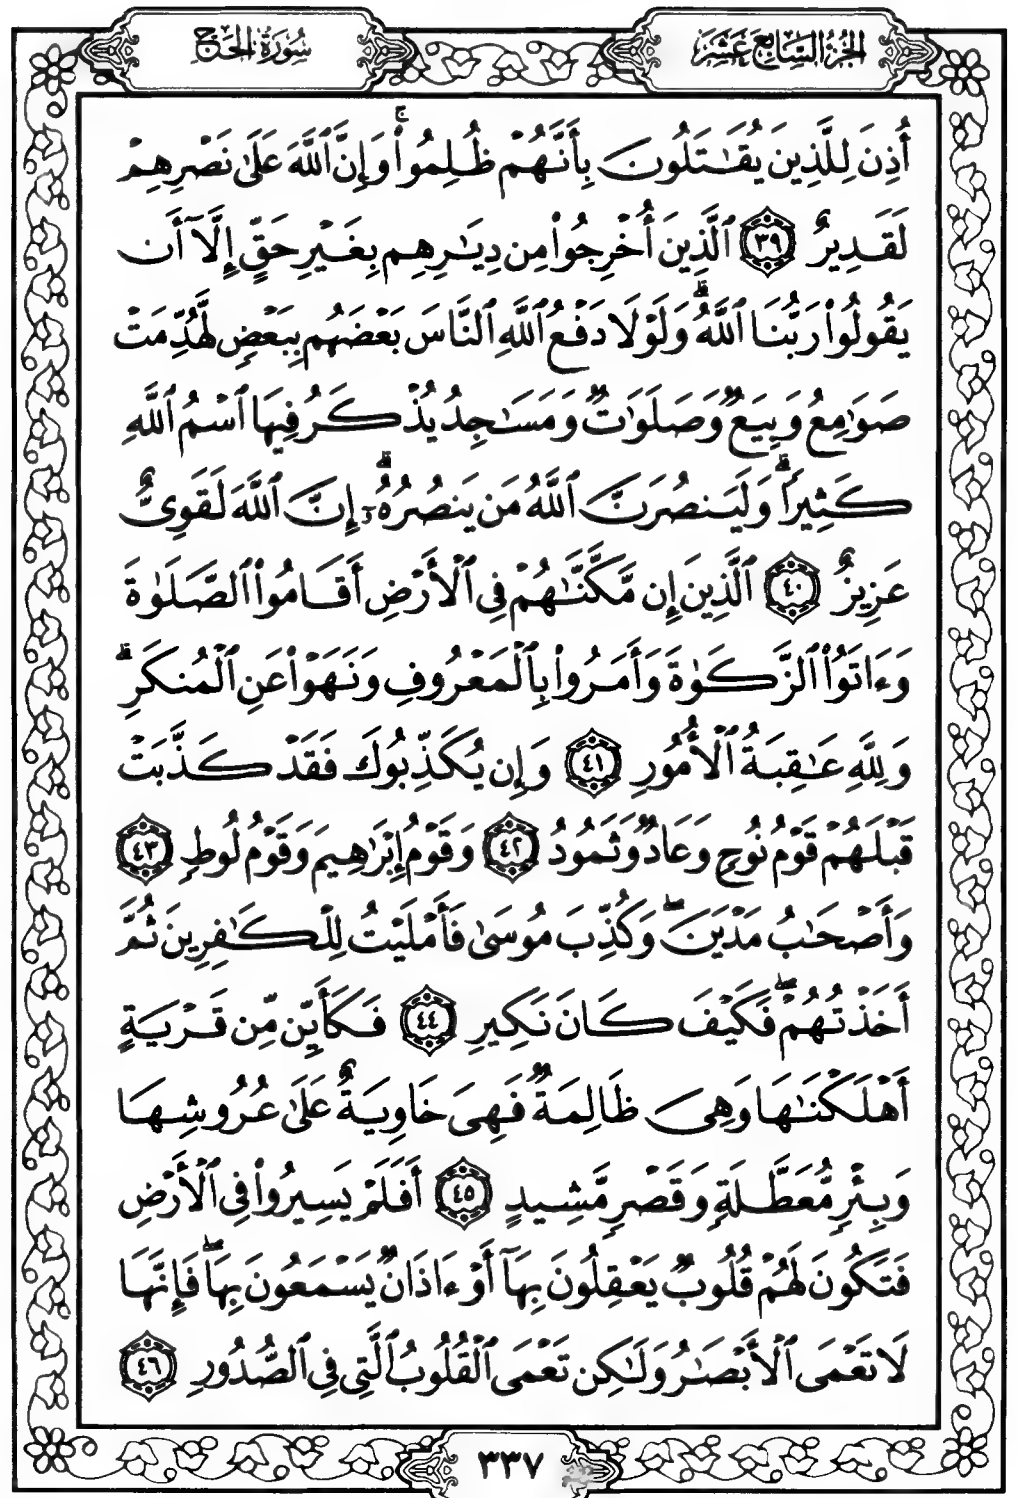 الجزء السابع عشر
سورة الحج
أُذِنَ لِلَّذِينَ يُقَـٰتَلُونَ بِأَنَّهُمْ ظُلِمُوا۟ ۚ وَإِنَّ ٱللَّهَ عَلَىٰ نَصْرِهِمْ
لَقَدِيرٌ ﴿٣٩﴾ ٱلَّذِينَ أُخْرِجُوا۟ مِن دِيَـٰرِهِم بِغَيْرِ حَقٍّ إِلَّآ أَن
يَقُولُوا۟ رَبُّنَا ٱللَّهُ ۗ وَلَوْلَا دَفْعُ ٱللَّهِ ٱلنَّاسَ بَعْضَهُم بِبَعْضٍ لَّهُدِّمَتْ
صَوَٰمِعُ وَبِيَعٌ وَصَلَوَٰتٌ وَمَسَـٰجِدُ يُذْكَرُ فِيهَا ٱسْمُ ٱللَّهِ
كَثِيرًا ۗ وَلَيَنصُرَنَّ ٱللَّهُ مَن يَنصُرُهُۥٓ ۗ إِنَّ ٱللَّهَ لَقَوِىٌّ
عَزِيزٌ ﴿٤٠﴾ ٱلَّذِينَ إِن مَّكَّنَّـٰهُمْ فِى ٱلْأَرْضِ أَقَامُوا۟ ٱلصَّلَوٰةَ
وَءَاتَوُا۟ ٱلزَّكَوٰةَ وَأَمَرُوا۟ بِٱلْمَعْرُوفِ وَنَهَوْا۟ عَنِ ٱلْمُنكَرِ ۗ
وَلِلَّهِ عَـٰقِبَةُ ٱلْأُمُورِ ﴿٤١﴾ وَإِن يُكَذِّبُوكَ فَقَدْ كَذَّبَتْ
قَبْلَهُمْ قَوْمُ نُوحٍ وَعَادٌ وَثَمُودُ ﴿٤٢﴾ وَقَوْمُ إِبْرَٰهِيمَ وَقَوْمُ لُوطٍ ﴿٤٣﴾
وَأَصْحَـٰبُ مَدْيَنَ ۖ وَكُذِّبَ مُوسَىٰ فَأَمْلَيْتُ لِلْكَـٰفِرِينَ ثُمَّ
أَخَذْتُهُمْ ۖ فَكَيْفَ كَانَ نَكِيرِ ﴿٤٤﴾ فَكَأَيِّن مِّن قَرْيَةٍ
أَهْلَكْنَـٰهَا وَهِىَ ظَالِمَةٌ فَهِىَ خَاوِيَةٌ عَلَىٰ عُرُوشِهَا
وَبِئْرٍ مُّعَطَّلَةٍ وَقَصْرٍ مَّشِيدٍ ﴿٤٥﴾ أَفَلَمْ يَسِيرُوا۟ فِى ٱلْأَرْضِ
فَتَكُونَ لَهُمْ قُلُوبٌ يَعْقِلُونَ بِهَآ أَوْ ءَاذَانٌ يَسْمَعُونَ بِهَا ۖ فَإِنَّهَا
لَا تَعْمَى ٱلْأَبْصَـٰرُ وَلَـٰكِن تَعْمَى ٱلْقُلُوبُ ٱلَّتِى فِى ٱلصُّدُورِ ﴿٤٦﴾
٣٣٧